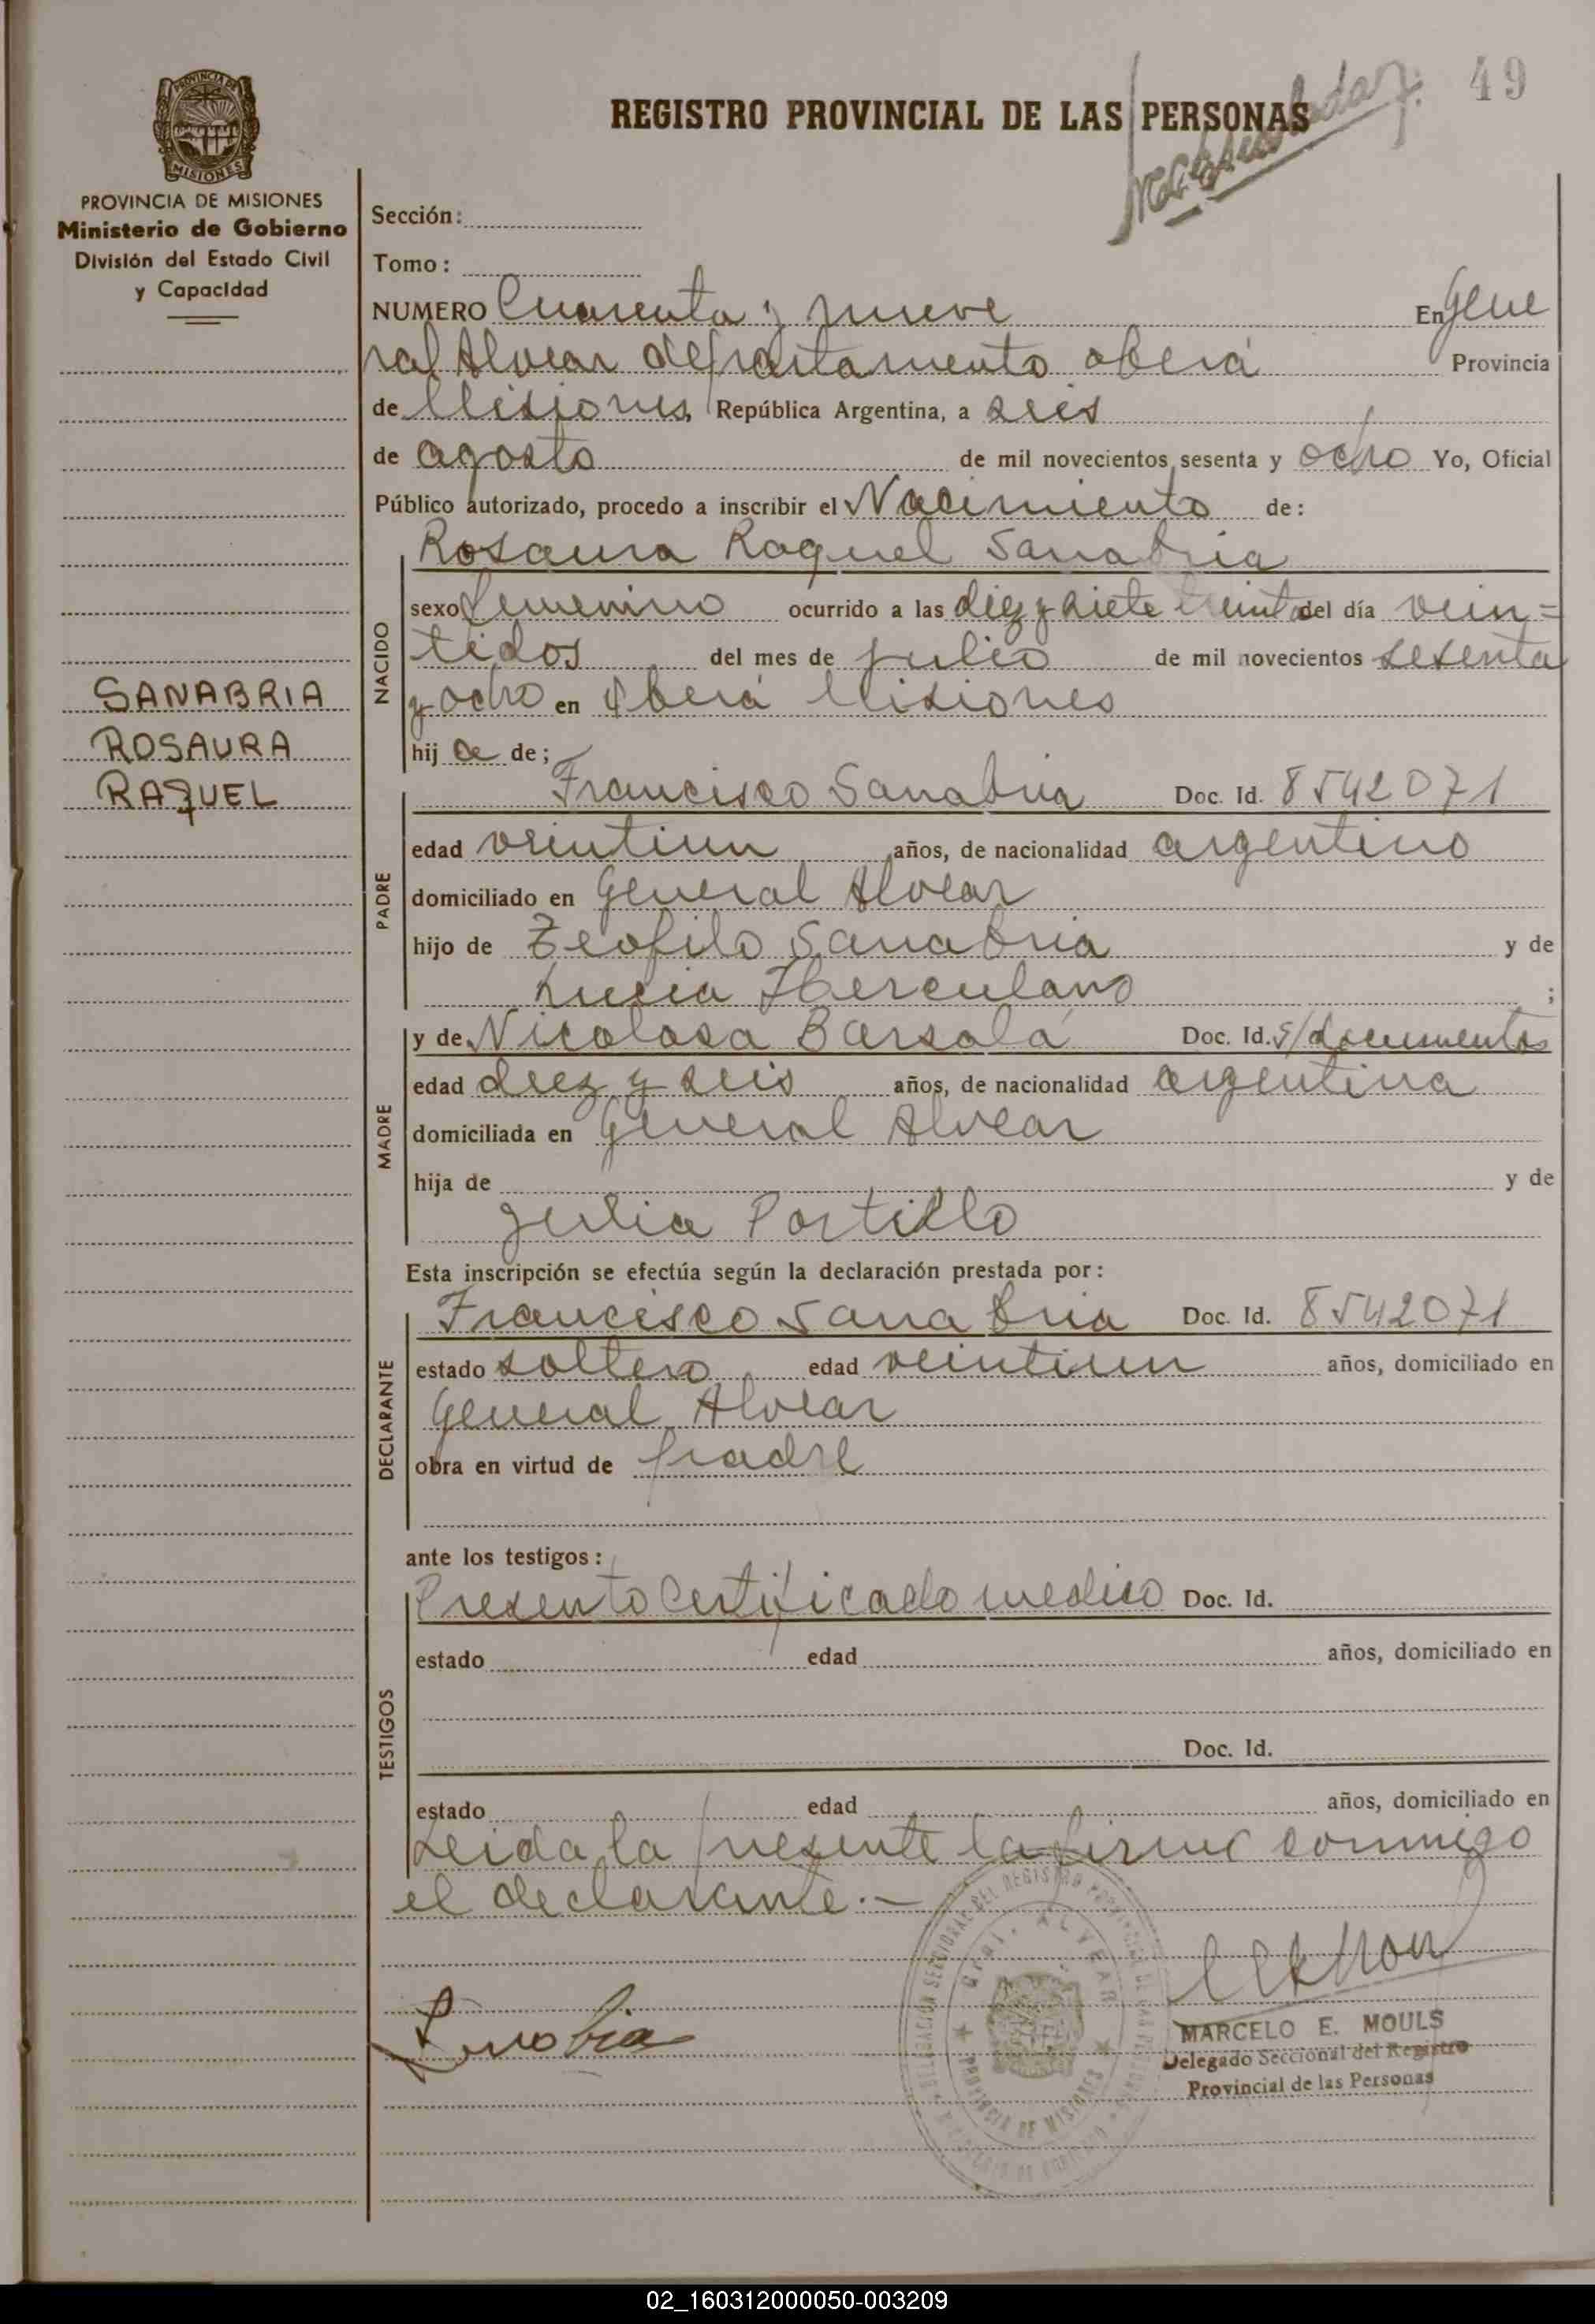 49
REGISTRO PROVINCIAL DE LAS PERSONAS
PROVINCIA DE MISIONES
MISIONES
PROVINCIA DE MISIONES
Ministerio de Gobierno
División del Estado Civil
y Capacidad
SANABRIA
ROSAURA
RAQUEL
Sección:
Tomo:
NUMERO Cuarenta y nueve En Gene
ral Alvear departamento oberá Provincia
de Misiones, República Argentina, a seis
de agosto de mil novecientos sesenta y ocho Yo, Oficial
Público autorizado, procedo a inscribir el Nacimiento de:
NACIDO
Rosaura Raquel Sanabria
sexo femenino ocurrido a las diez y siete treinta del día vein=
tidos del mes de julio de mil novecientos sesenta
y ocho en Oberá Misiones
hija de;
PADRE
Francisco Sanabria Doc. Id. 8542071
edad veintiun años, de nacionalidad argentino
domiciliado en General Alvear
hijo de Teofilo Sanabria y de
Lucia Herculano ;
MADRE
y de Nicolasa Barsola Doc. Id. s/documentos
edad diez y seis años, de nacionalidad argentina
domiciliada en General Alvear
hija de y de
Julia Portillo
Esta inscripción se efectúa según la declaración prestada por:
DECLARANTE
Francisco Sanabria Doc. Id. 8542071
estado soltero edad veintiun años, domiciliado en
General Alvear
obra en virtud de padre
ante los testigos:
TESTIGOS
Presento Certificado medico Doc. Id.
estado edad años, domiciliado en
Doc. Id.
estado edad años, domiciliado en
Leida la presente la firma conmigo
el declarante.-
GRAL. ALVEAR
PROVINCIA DE MISIONES
MARCELO E. MOULS
Delegado Seccional del Registro
Provincial de las Personas
02_160312000050-003209